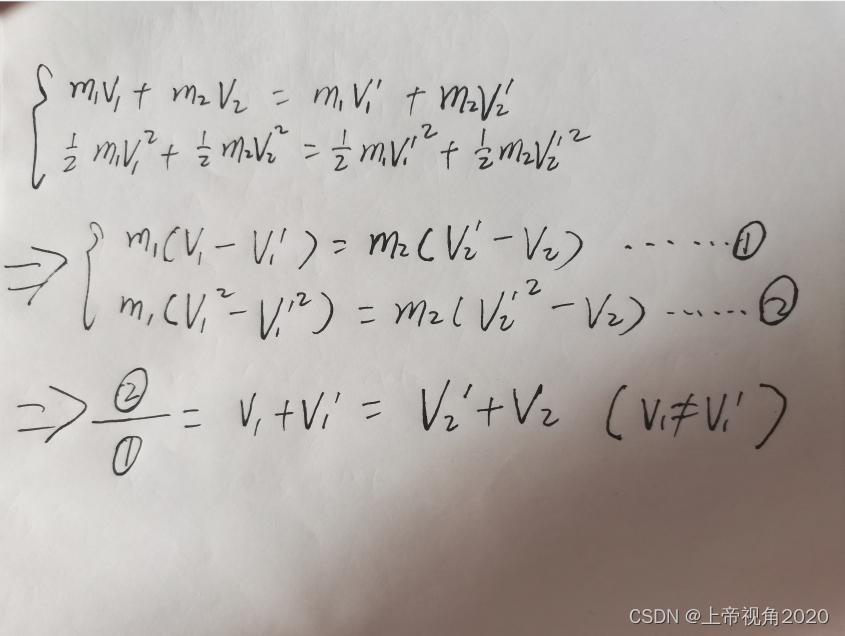 m₁V₁ + m₂V₂ = m₁V₁' + m₂V₂'
½ m₁V₁² + ½ m₂V₂² = ½ m₁V₁'² + ½ m₂V₂'²
⇒ { m₁(V₁ - V₁') = m₂(V₂' - V₂) ······①
m₁(V₁² - V₁'²) = m₂(V₂'² - V₂) ······②
⇒ ②/① = V₁ + V₁' = V₂' + V₂ (V₁ ≠ V₁')
CSDN @上帝视角2020